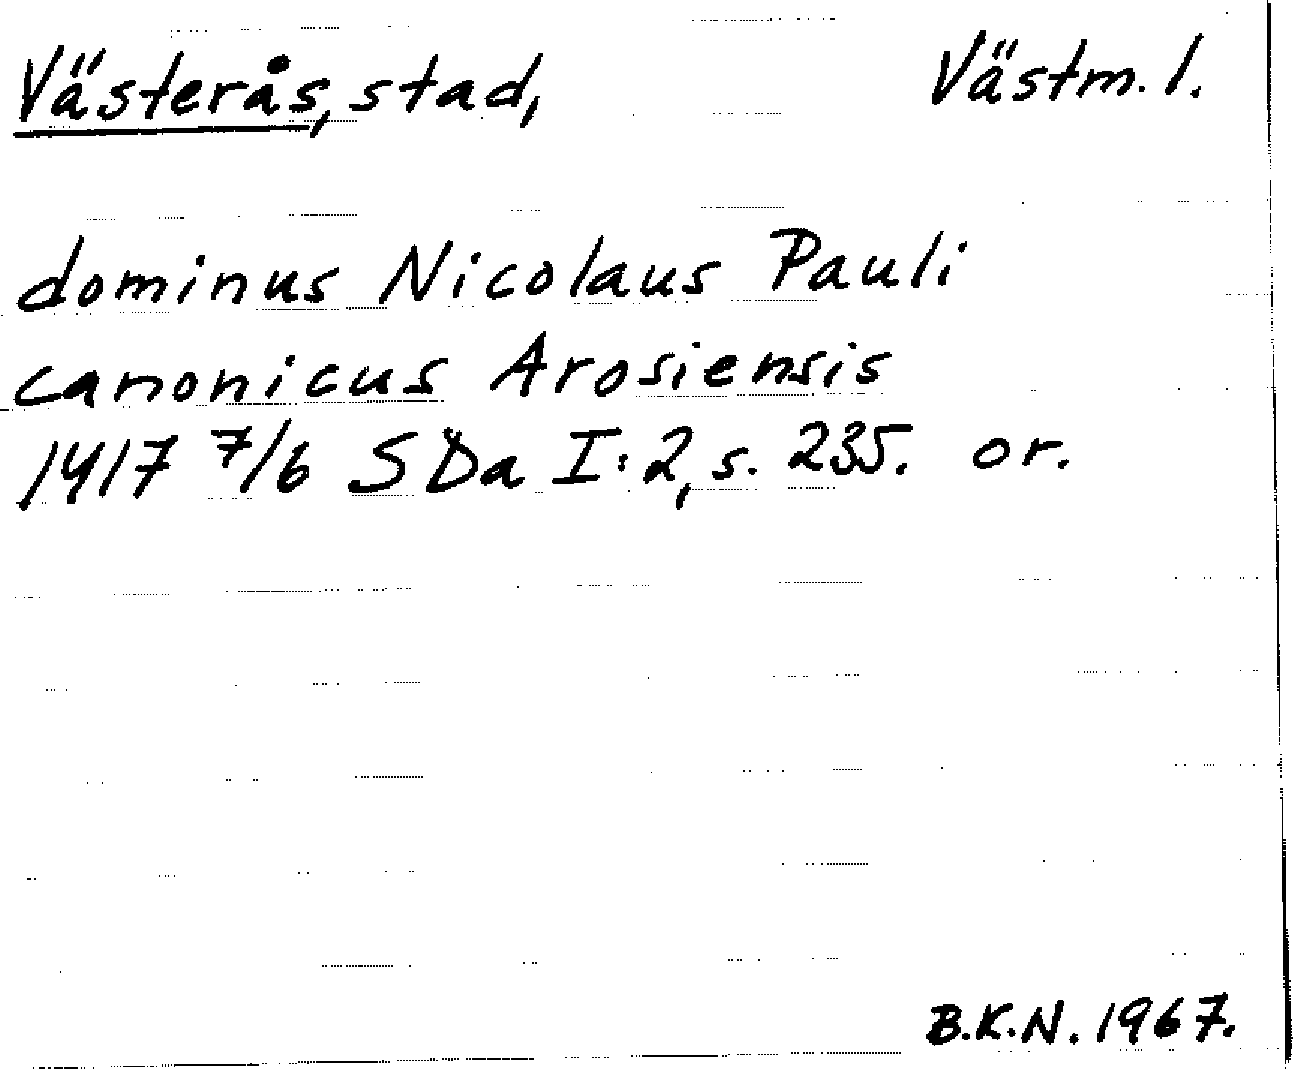 Västerås, stad, Västm. l.
dominus Nicolaus Pauli
canonicus Arosiensis
1417 7/6 SDa I:2, s. 235. or.
B.K.N. 1967.